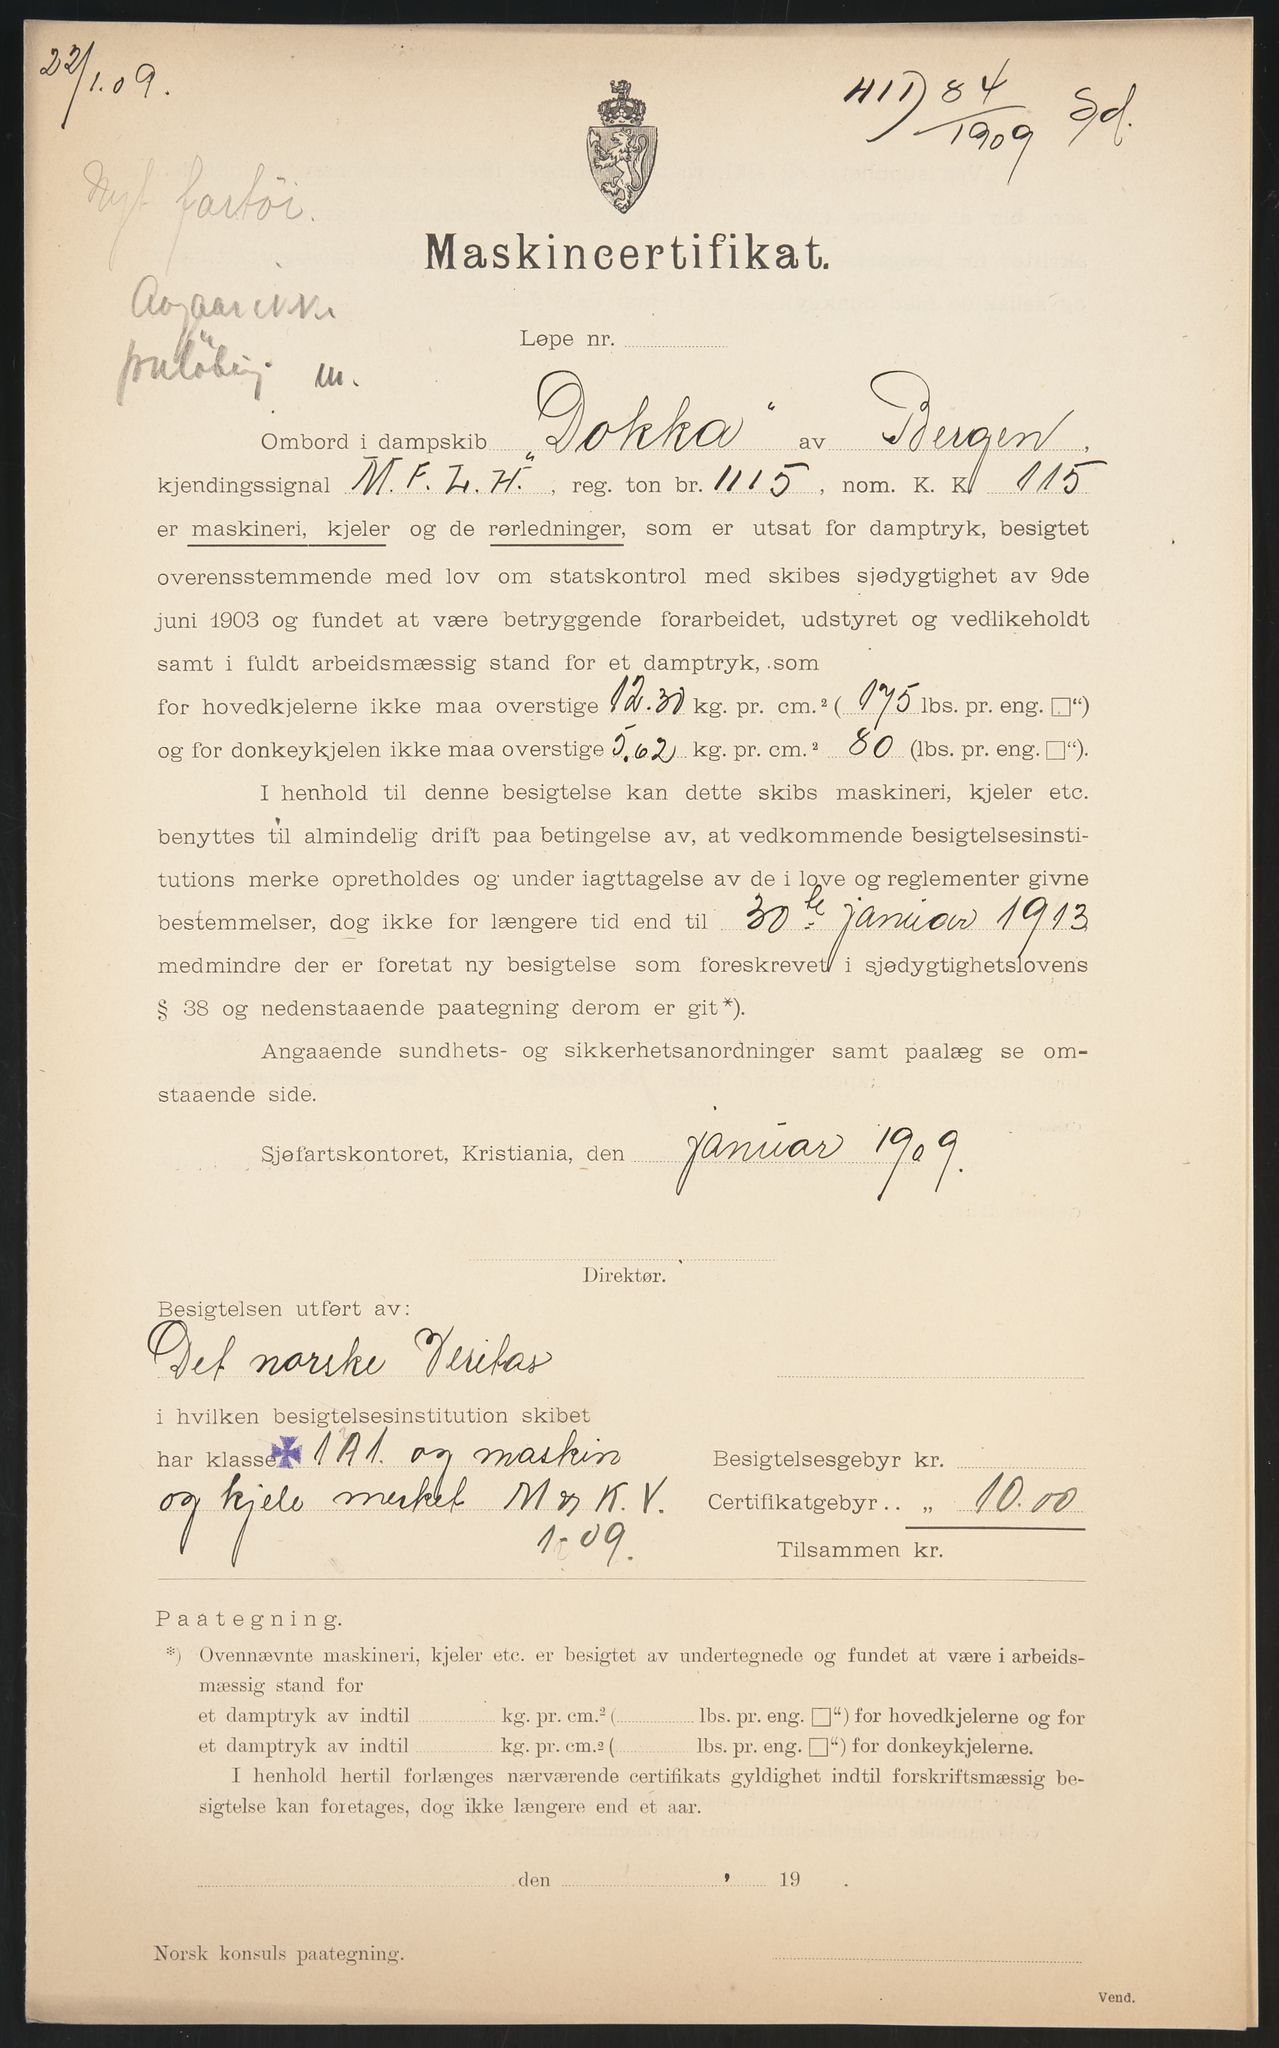 22/1.09.
HID 84/1909 Sd.
Nyt fartöi.
Avgaar ikke
forelöbig. m.
Maskincertifikat.
Løpe nr.
Ombord i dampskib "Dokka" av Bergen,
kjendingssignal M.F.L.H., reg. ton br. 1115, nom. K. K. 115
er maskineri, kjeler og de rørledninger, som er utsat for damptryk, besigtet
overensstemmende med lov om statskontrol med skibes sjødygtighet av 9de
juni 1903 og fundet at være betryggende forarbeidet, udstyret og vedlikeholdt
samt i fuldt arbeidsmæssig stand for et damptryk, som
for hovedkjelerne ikke maa overstige 12.30 kg. pr. cm.² (175 lbs. pr. eng. □“)
og for donkeykjelen ikke maa overstige 5.62 kg. pr. cm.² 80 (lbs. pr. eng. □“).
I henhold til denne besigtelse kan dette skibs maskineri, kjeler etc.
benyttes til almindelig drift paa betingelse av, at vedkommende besigtelsesinsti-
tutions merke opretholdes og under iagttagelse av de i love og reglementer givne
bestemmelser, dog ikke for længere tid end til 30te januar 1913
medmindre der er foretat ny besigtelse som foreskrevet i sjødygtighetslovens
§ 38 og nedenstaaende paategning derom er git*).
Angaaende sundhets- og sikkerhetsanordninger samt paalæg se om-
staaende side.
Sjøfartskontoret, Kristiania, den januar 1909.
Direktør.
Besigtelsen utført av:
Det norske Veritas
i hvilken besigtelsesinstitution skibet
har klasse ✠ 1A1. og maskin
og kjele merket M & K. V.
1-09.
Besigtelsesgebyr kr.
Certifikatgebyr.. „ 10.00
Tilsammen kr.
Paategning.
*) Ovennævnte maskineri, kjeler etc. er besigtet av undertegnede og fundet at være i arbeids-
mæssig stand for
et damptryk av indtil kg. pr. cm.² ( lbs. pr. eng. □“) for hovedkjelerne og for
et damptryk av indtil kg. pr. cm.² ( lbs. pr. eng. □“) for donkeykjelerne.
I henhold hertil forlænges nærværende certifikats gyldighet indtil forskriftsmæssig be-
sigtelse kan foretages, dog ikke længere end et aar.
den 19 .
Norsk konsuls paategning.
Vend.